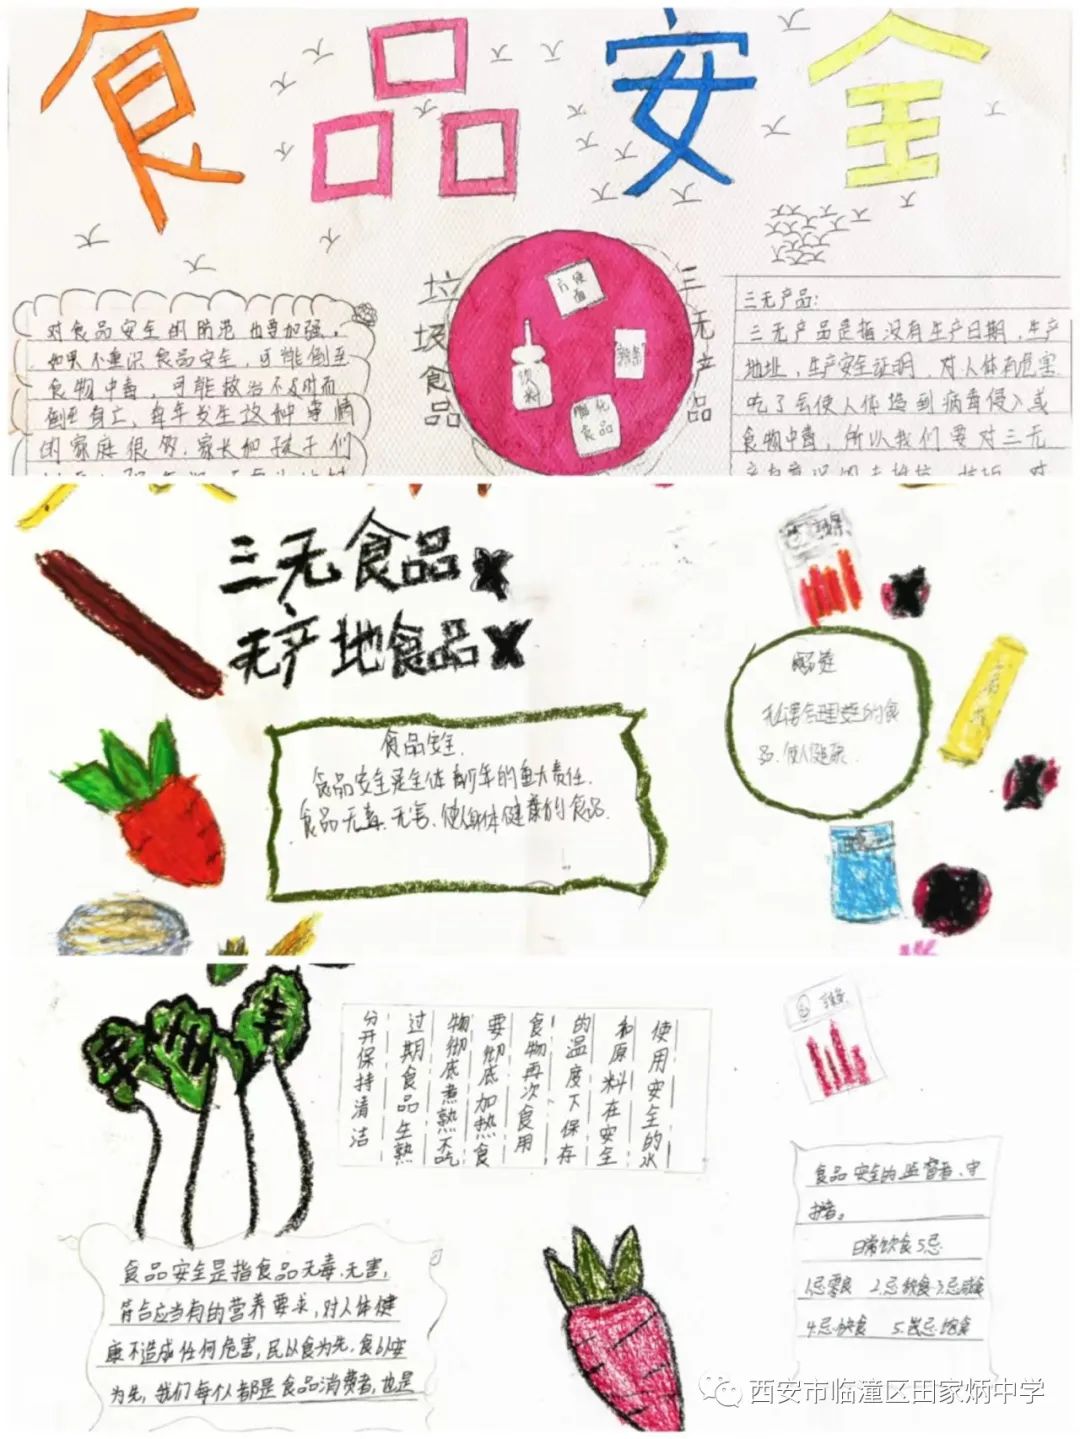 食品安全
对食品安全的防范也要加强。
如果不重识食品安全，可能倒至
食物中毒，可能救治不及时而
倒至身亡，每年发生这种事情
的家庭很多，家长和孩子们
垃圾食品
方便面
饮料
辣条
膨化食品
三无产品
三无产品：
三无产品是指没有生产日期、生产
地址，生产安全证明，对人体有危害
吃了会使人体遭到病毒侵入或
食物中毒，所以我们要对三无
三无食品
无产地食品
辣条
食品安全
食品安全是全体青少年的重大责任.
食品无毒、无害、使身体健康的食品.
合理
的食
品.使人健康.
辣条
使用安全的水
和原料在安全
的温度下保存
食物再次食用
要彻底加热食
物彻底煮熟不吃
过期食品生熟
分开保持清洁
食品安全是指食品无毒、无害,
符合应当有的营养要求,对人体健
康不造成任何危害,民以食为先,食以安
为先,我们每个人都是食品消费者,也是
食品安全的监督者、守
护者。
日常饮食5忌
1.忌零食 2.忌快食 3.忌
4.忌 食 5.
西安市临潼区田家炳中学